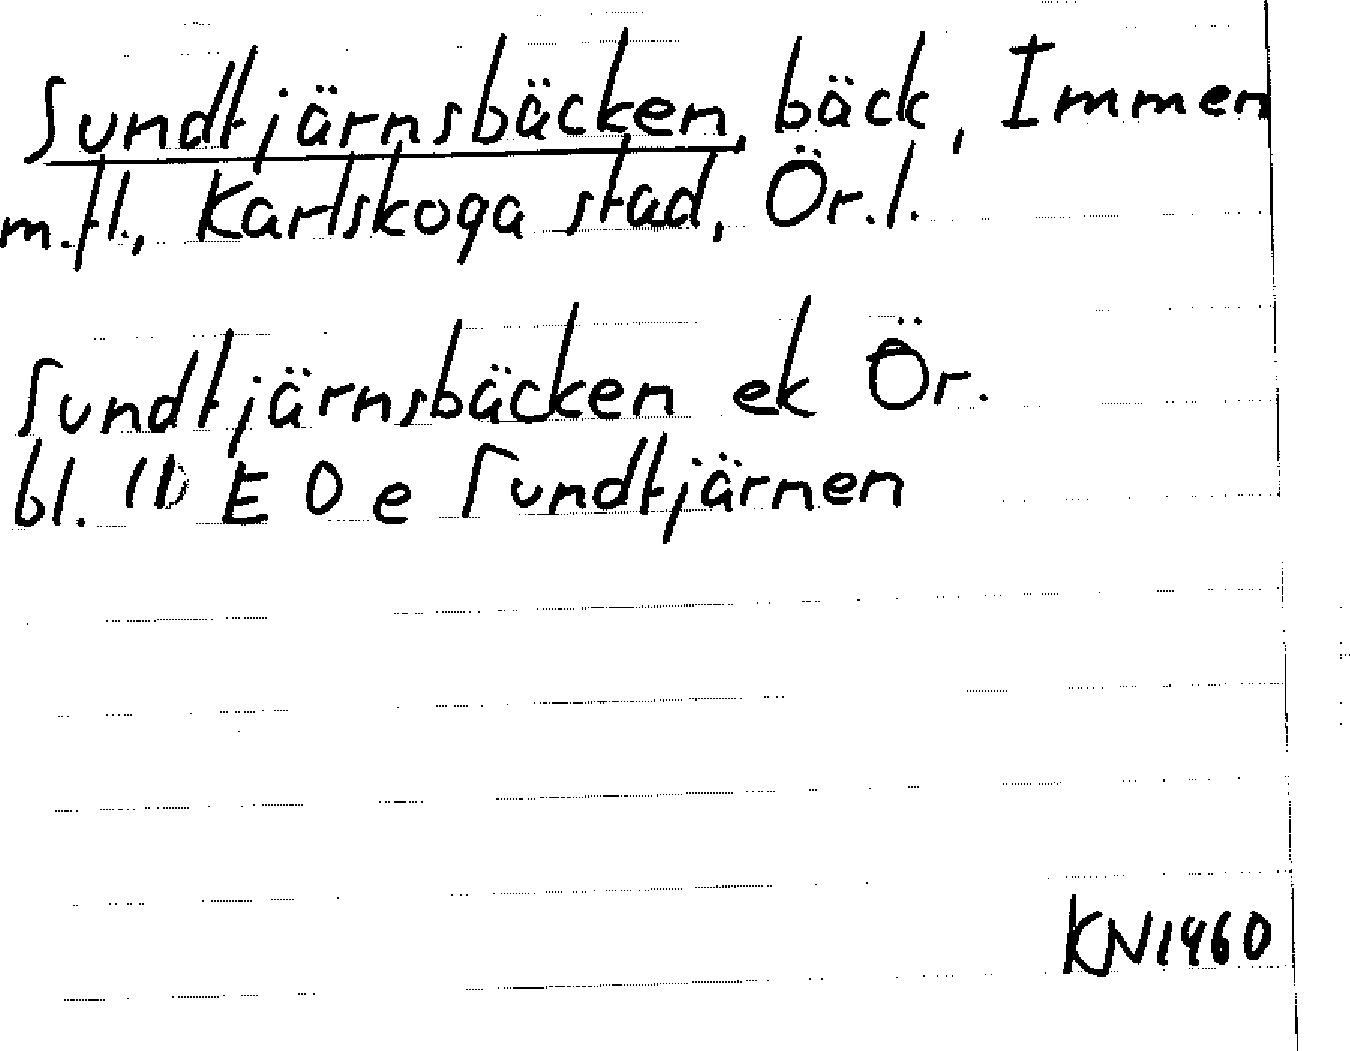 Sundtjärnsbäcken, bäck, Immen
m.fl., Karlskoga stad, Ör.l.
Sundtjärnsbäcken ek Ör.
bl. 11D E O e Sundtjärnen
KN1960